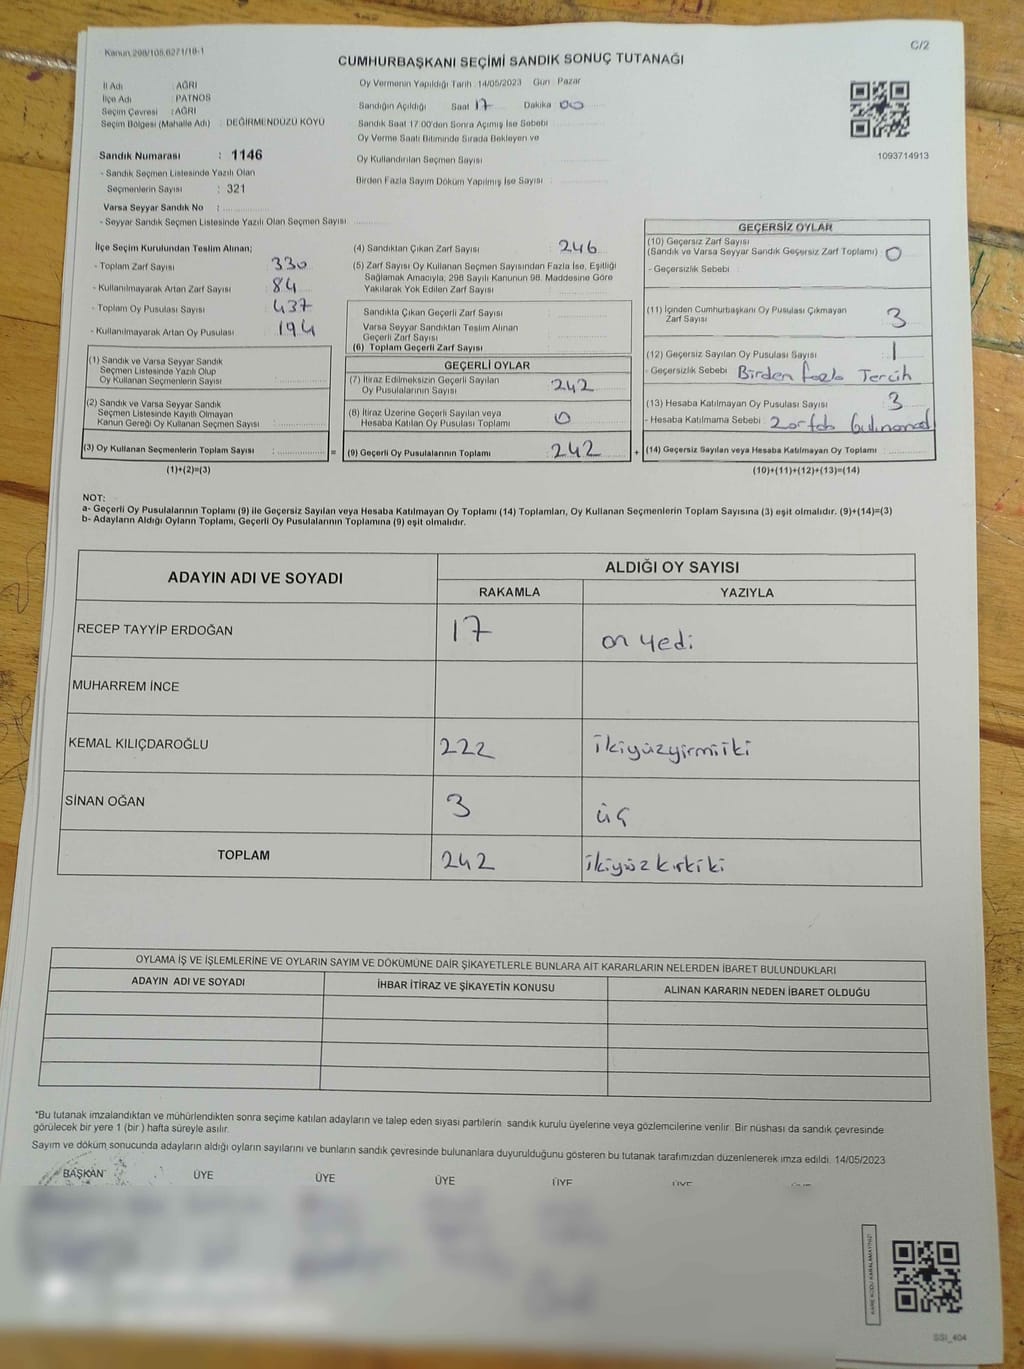 Kanun 298/108,6271/18-1
C/2
CUMHURBAŞKANI SEÇİMİ SANDIK SONUÇ TUTANAĞI
İl Adı : AĞRI
İlçe Adı : PATNOS
Seçim Çevresi : AĞRI
Seçim Bölgesi (Mahalle Adı) : DEĞİRMENDÜZÜ KÖYÜ
Oy Vermenin Yapıldığı Tarih : 14/05/2023 Gün : Pazar
Sandığın Açıldığı Saat 17 Dakika 00
Sandık Saat 17:00'den Sonra Açımış İse Sebebi
Oy Verme Saati Bitiminde Sırada Bekleyen ve
Oy Kullandırılan Seçmen Sayısı
Birden Fazla Sayım Döküm Yapılmış İse Sayısı :
1093714913
Sandık Numarası : 1146
- Sandık Seçmen Listesinde Yazılı Olan
Seçmenlerin Sayısı : 321
Varsa Seyyar Sandık No :
- Seyyar Sandık Seçmen Listesinde Yazılı Olan Seçmen Sayısı
İlçe Seçim Kurulundan Teslim Alınan;
- Toplam Zarf Sayısı 330
- Kullanılmayarak Artan Zarf Sayısı : 84
- Toplam Oy Pusulası Sayısı : 437
- Kullanılmayarak Artan Oy Pusulası : 194
(1) Sandık ve Varsa Seyyar Sandık
Seçmen Listesinde Yazılı Olup
Oy Kullanan Seçmenlerin Sayısı :
(2) Sandık ve Varsa Seyyar Sandık
Seçmen Listesinde Kayıtlı Olmayan
Kanun Gereği Oy Kullanan Seçmen Sayısı :
(3) Oy Kullanan Seçmenlerin Toplam Sayısı : =
(1)+(2)=(3)
(4) Sandıktan Çıkan Zarf Sayısı : 246
(5) Zarf Sayısı Oy Kullanan Seçmen Sayısından Fazla İse, Eşitliği
Sağlamak Amacıyla; 298 Sayılı Kanunun 98. Maddesine Göre
Yakılarak Yok Edilen Zarf Sayısı
Sandıkta Çıkan Geçerli Zarf Sayısı
Varsa Seyyar Sandıktan Teslim Alınan
Geçerli Zarf Sayısı
(6) Toplam Geçerli Zarf Sayısı
GEÇERLİ OYLAR
(7) İtiraz Edilmeksizin Geçerli Sayılan
Oy Pusulalarının Sayısı : 242
(8) İtiraz Üzerine Geçerli Sayılan veya
Hesaba Katılan Oy Pusulası Toplamı : 0
(9) Geçerli Oy Pusulalarının Toplamı : 242 +
GEÇERSİZ OYLAR
(10) Geçersiz Zarf Sayısı
(Sandık ve Varsa Seyyar Sandık Geçersiz Zarf Toplamı) : 0
- Geçersizlik Sebebi :
(11) İçinden Cumhurbaşkanı Oy Pusulası Çıkmayan
Zarf Sayısı 3
(12) Geçersiz Sayılan Oy Pusulası Sayısı : 1
- Geçersizlik Sebebi Birden fazla Tercih
(13) Hesaba Katılmayan Oy Pusulası Sayısı : 3
- Hesaba Katılmama Sebebi :
(14) Geçersiz Sayılan veya Hesaba Katılmayan Oy Toplamı :
(10)+(11)+(12)+(13)=(14)
NOT:
a- Geçerli Oy Pusulalarının Toplamı (9) ile Geçersiz Sayılan veya Hesaba Katılmayan Oy Toplamı (14) Toplamları, Oy Kullanan Seçmenlerin Toplam Sayısına (3) eşit olmalıdır. (9)+(14)=(3)
b- Adayların Aldığı Oyların Toplamı, Geçerli Oy Pusulalarının Toplamına (9) eşit olmalıdır.
ADAYIN ADI VE SOYADI
ALDIĞI OY SAYISI
RAKAMLA YAZIYLA
RECEP TAYYİP ERDOĞAN 17 on yedi
MUHARREM İNCE
KEMAL KILIÇDAROĞLU 222 ikiyüzyirmiiki
SİNAN OĞAN 3 üç
TOPLAM 242 ikiyüzkırkiki
OYLAMA İŞ VE İŞLEMLERİNE VE OYLARIN SAYIM VE DÖKÜMÜNE DAİR ŞİKAYETLERLE BUNLARA AİT KARARLARIN NELERDEN İBARET BULUNDUKLARI
ADAYIN ADI VE SOYADI İHBAR İTİRAZ VE ŞİKAYETİN KONUSU ALINAN KARARIN NEDEN İBARET OLDUĞU
*Bu tutanak imzalandıktan ve mühürlendikten sonra seçime katılan adayların ve talep eden siyasi partilerin sandık kurulu üyelerine veya gözlemcilerine verilir. Bir nüshası da sandık çevresinde
görülecek bir yere 1 (bir) hafta süreyle asılır.
Sayım ve döküm sonucunda adayların aldığı oyların sayılarını ve bunların sandık çevresinde bulunanlara duyurulduğunu gösteren bu tutanak tarafımızdan düzenlenerek imza edildi. 14/05/2023
BAŞKAN ÜYE ÜYE ÜYE ÜYE ÜYE
KARE KODU KARALAMAYINIZ!
SSI_404